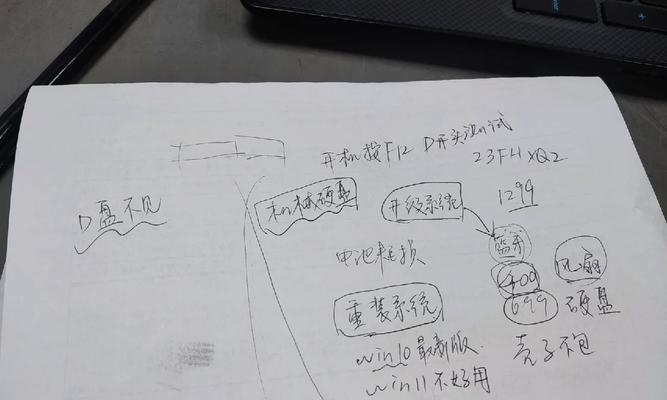 开机按F12 D开头测试
23FHXQ2
D盘不见
机械硬盘
升级系统
1299
蓝牙
电池耗损
400
风扇
重装系统
699 硬盘
win10最新版.
壳子不包
win11不好用